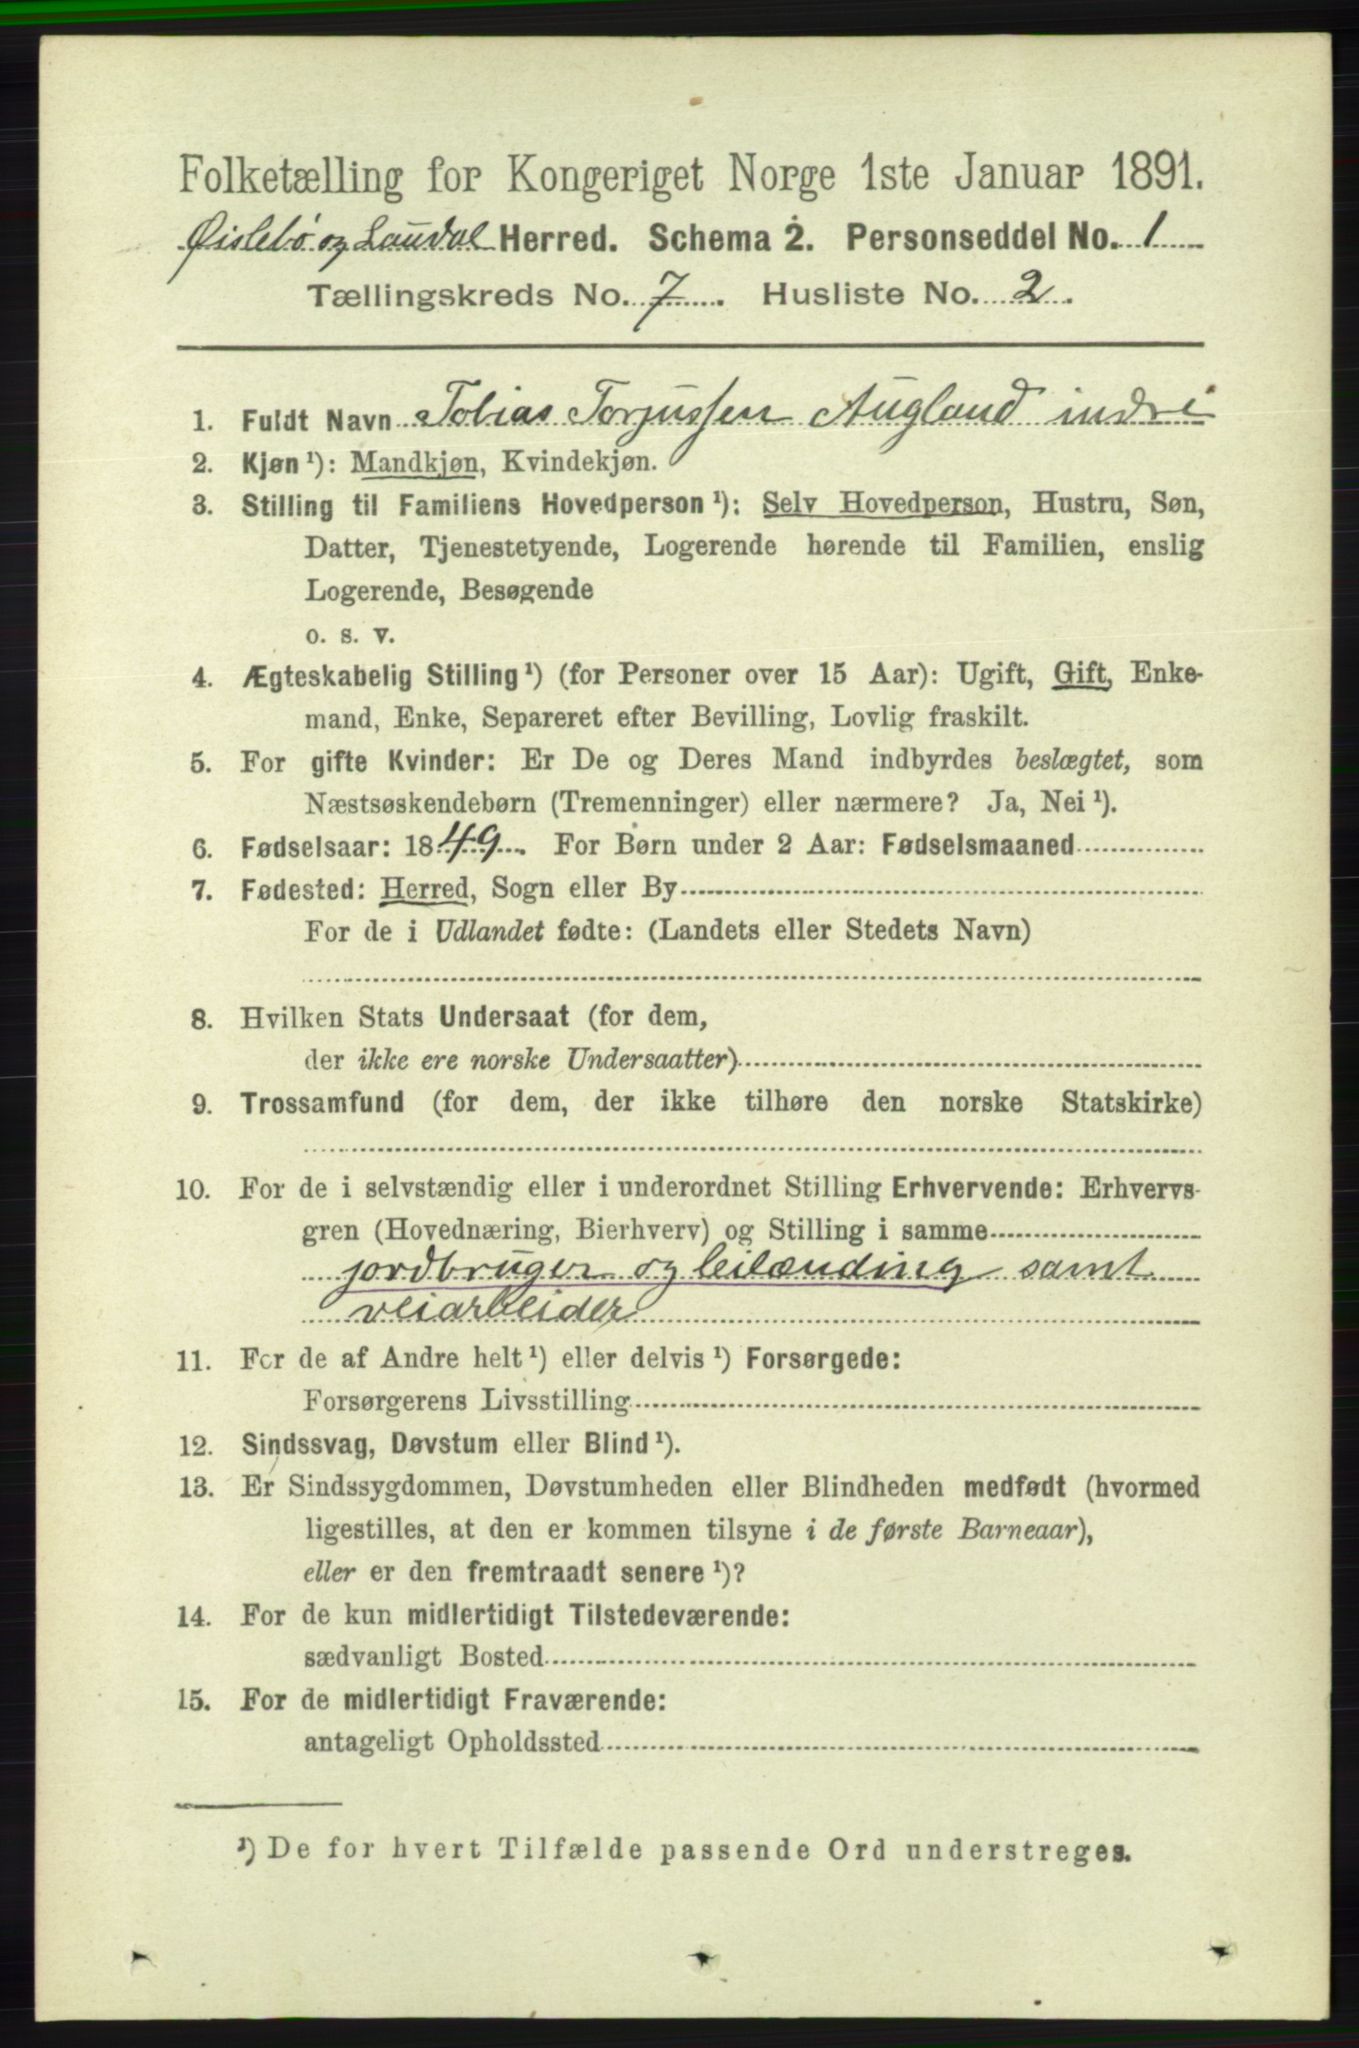 Folketælling for Kongeriget Norge 1ste Januar 1891.
Øislebö og Laudal Herred. Schema 2. Personseddel No. 1
Tællingskreds No. 7. Husliste No. 2.
1. Fuldt Navn Tobias Torjussen Augland indre
2. Kjøn¹): Mandkjøn, Kvindekjøn.
3. Stilling til Familiens Hovedperson¹): Selv Hovedperson, Hustru, Søn,
Datter, Tjenestetyende, Logerende hørende til Familien, enslig
Logerende, Besøgende
o. s. v.
4. Ægteskabelig Stilling¹) (for Personer over 15 Aar): Ugift, Gift, Enke-
mand, Enke, Separeret efter Bevilling, Lovlig fraskilt.
5. For gifte Kvinder: Er De og Deres Mand indbyrdes beslægtet, som
Næstsøskendebørn (Tremenninger) eller nærmere? Ja, Nei¹).
6. Fødselsaar: 1849. For Børn under 2 Aar: Fødselsmaaned
7. Fødested: Herred, Sogn eller By
For de i Udlandet fødte: (Landets eller Stedets Navn)
8. Hvilken Stats Undersaat (for dem,
der ikke ere norske Undersaatter)
9. Trossamfund (for dem, der ikke tilhøre den norske Statskirke)
10. For de i selvstændig eller i underordnet Stilling Erhvervende: Erhvervs-
gren (Hovednæring, Bierhverv) og Stilling i samme
jordbruger og leilænding samt
veiarbeider
11. For de af Andre helt¹) eller delvis¹) Forsørgede:
Forsørgerens Livsstilling
12. Sindssvag, Døvstum eller Blind¹).
13. Er Sindssygdommen, Døvstumheden eller Blindheden medfødt (hvormed
ligestilles, at den er kommen tilsyne i de første Barneaar),
eller er den fremtraadt senere¹)?
14. For de kun midlertidigt Tilstedeværende:
sædvanligt Bosted
15. For de midlertidigt Fraværende:
antageligt Opholdssted
¹) De for hvert Tilfælde passende Ord understreges.